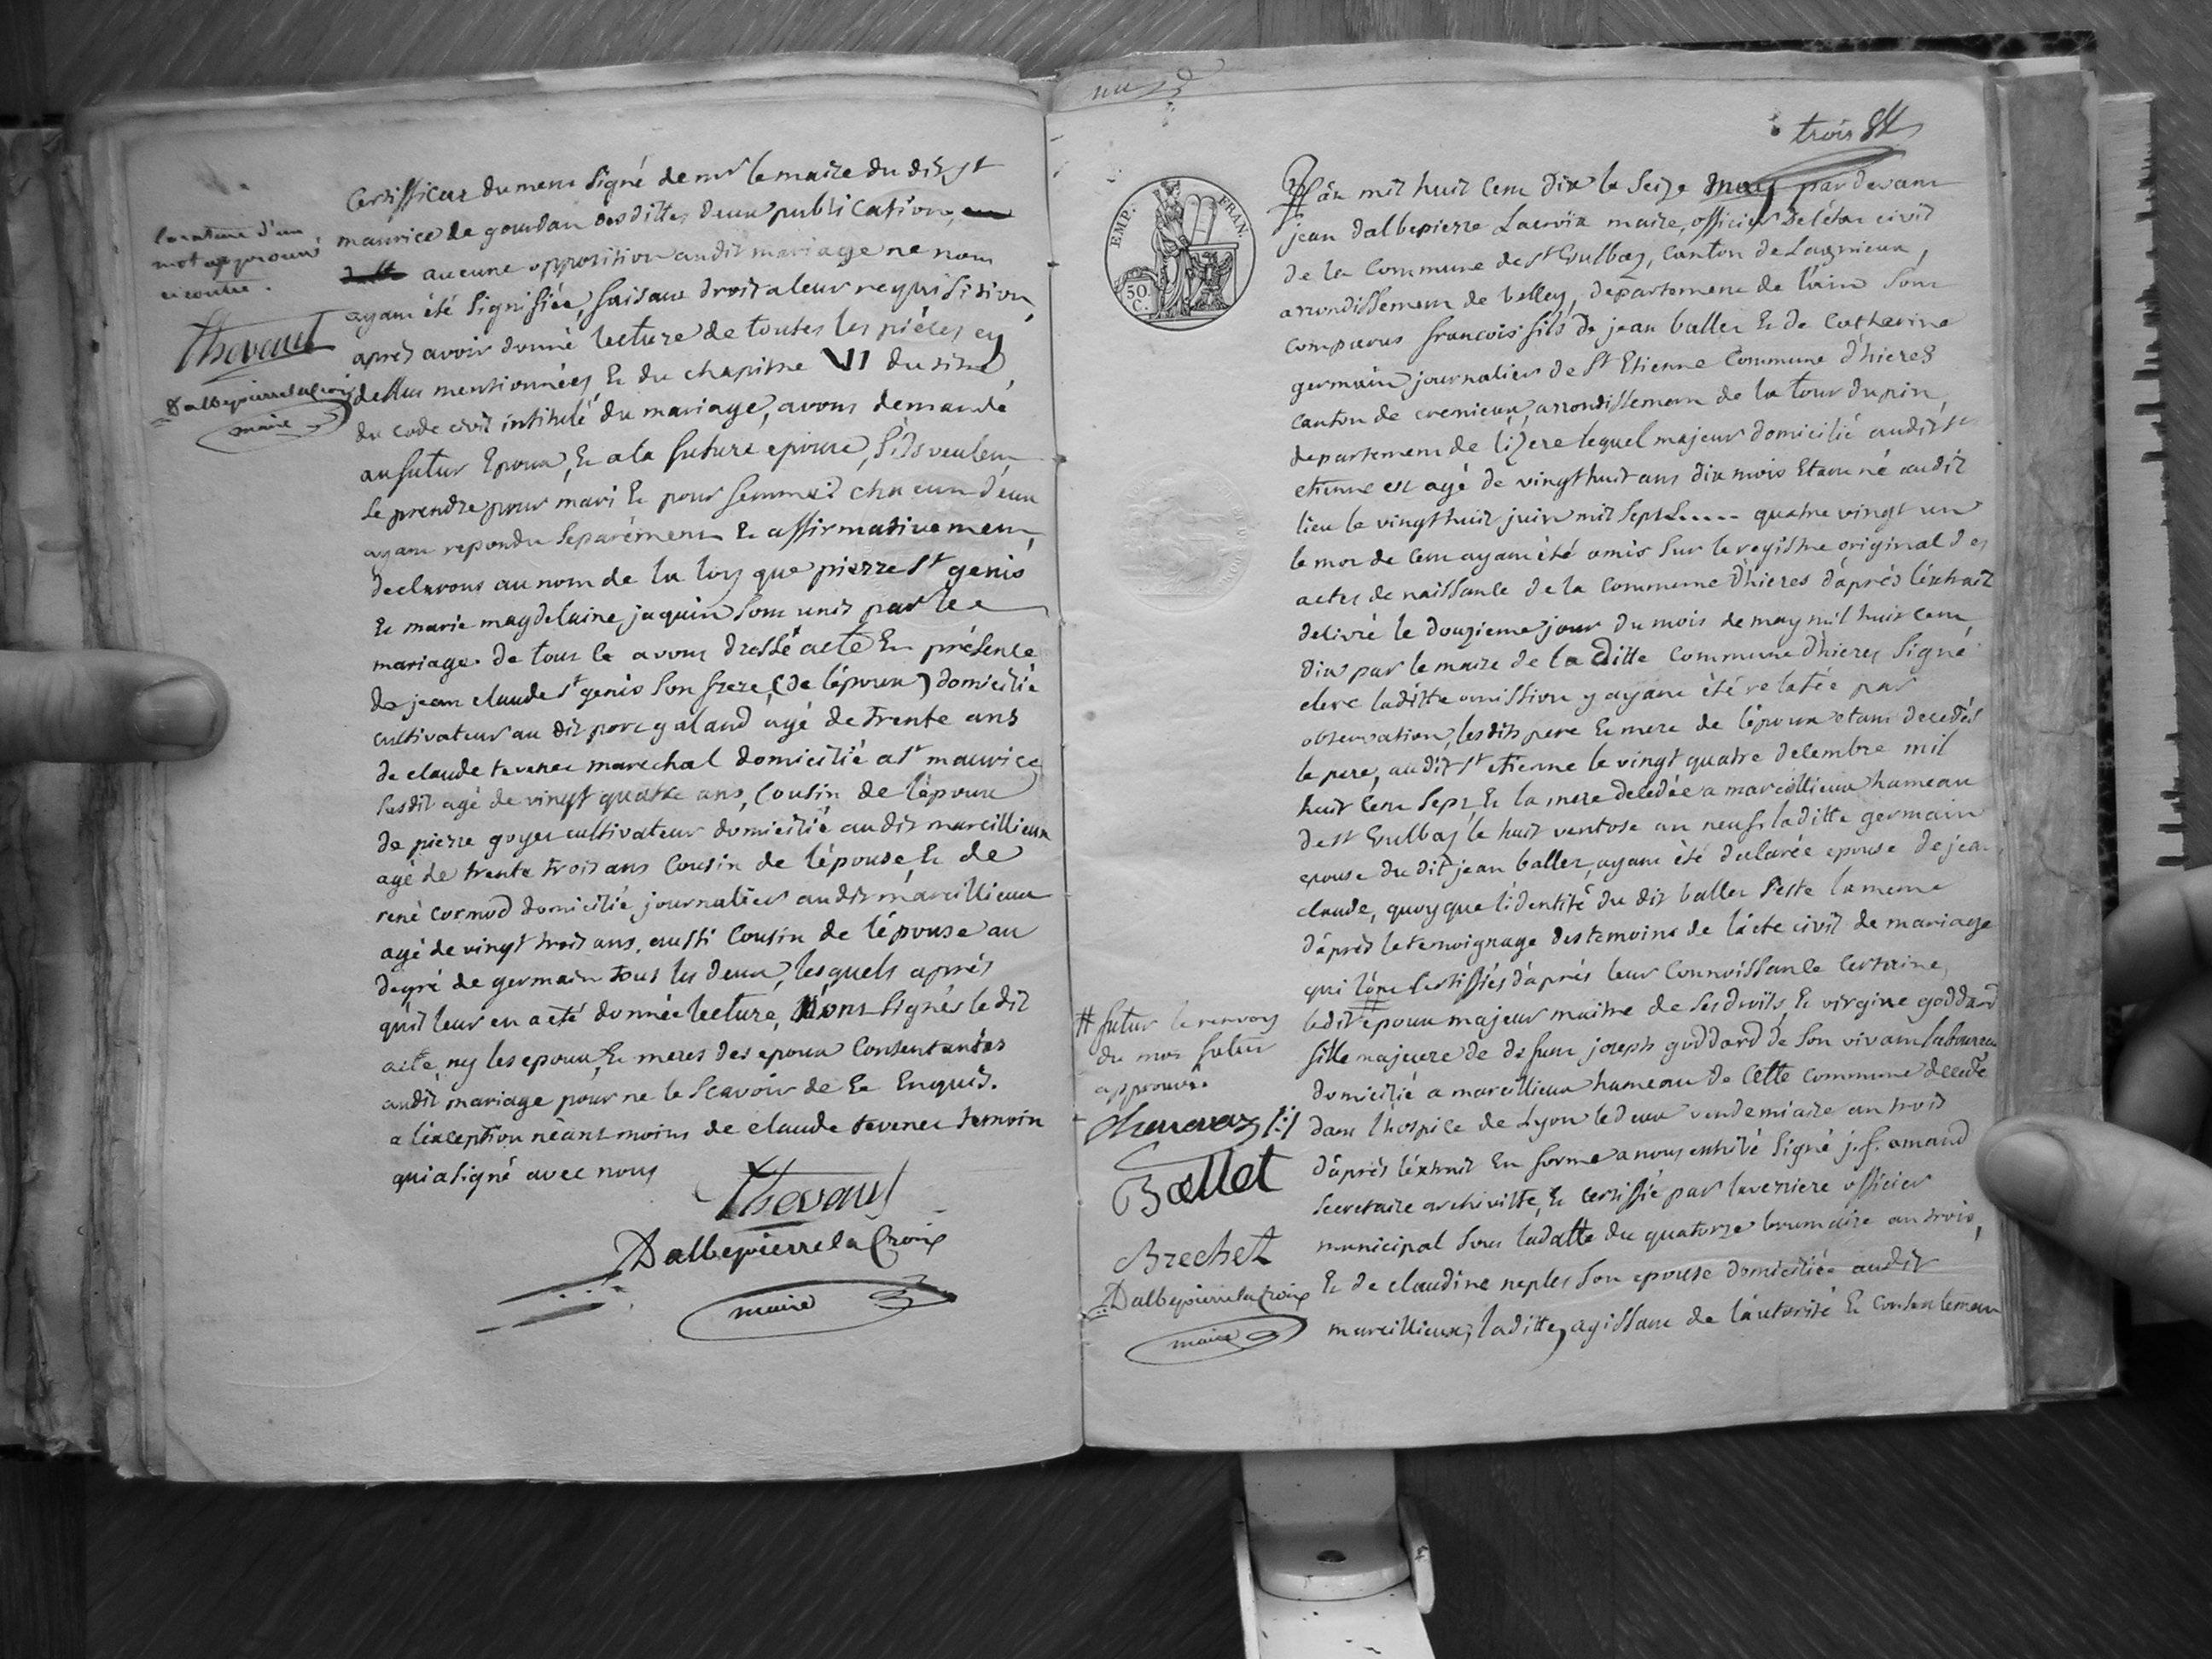 Certifficat du meme signé de mr le maire du dit st
maurice de gourdan des dittes deux publications
aucune opposition audit mariage ne nous
ayant été signifiée, faisant droit a leur requisition,
après avoir donné lecture de toutes les pièces cy
dessus mentionnées, & du chapitre VI du titre
du code civil intitulé du mariage, avons demandé
au futur Epoux, & a la future epouse, s'ils veulent
se prendre pour mari & pour femme? chacun d'eux
ayant repondu separément & affirmativement,
declarons au nom de la loy que pierre st genis
& marie magdelaine jaquin sont unis par le
mariage. de tout ce avons dressé acte En présence
de jean claude st genis son frere, (de lépoux) domicilié
cultivateur au dit port galand agé de trente ans
de claude tevenet marechal domicilié a st maurice
susdit agé de vingt quatre ans, cousin de l'époux
de pierre goyet cultivateur domicilié au dit marcillieux
agé de trente trois ans cousin de l'épouse, & de
rené cornod domicilié journalier audit marcillieux
agé de vingt trois ans, aussi cousin de l'épouse au
degré de germain tous les deux, lesquels aprés
qu'il leur en a été donnée lecture, n'ont signés le dit
acte, ny les epoux, & meres des epoux consentantes
audit mariage pour ne le scavoir de ce Enquis.
a léxception néant moins de claude tevenet temoin
qui a signé avec nous
Thevenet
Dalbepierre la Croix
maire
la rature d'un
mot approuvé
ci contre.
Thevenet
Dalbepierre lacroix
maire
trois
L'an mil huit cent dix le seize may par devant
jean dalbepierre Lacroix maire, officier de létat civil
de la commune de st Vulbaz, canton de Lagnieux,
arrondissement de belley, departement de l'ain sont
comparus francois fils de jean ballet & de catherine
germain journalier de St Etienne commune d'hieres
canton de cremieux, arrondissement de la tour du pin
departement de l'izere lequel majeur domicilié audit st
etienne est agé de vingt huit ans dix mois Etant né audit
lieu le vingt huit juin mil sept..... quatre vingt un
le mot de cent ayant été omis sur le registre original des
actes de naissance de la commune d'hieres d'aprés l'éxtrait
delivré le douzieme jour du mois de may mil huit cent
dix par le maire de la ditte commune d'hieres signé
clerc la ditte omission y ayant été relatée par
observation, les dits pere & mere de l'époux etant decedés
le pere, audit st etienne le vingt quatre decembre mil
huit cent sept, & la mere decedée a marcillieux hameau
de st Vulbaz le huit ventose an neuf, la ditte germain
epouse du dit jean ballet, ayant été declarée epouse de jean
claude, quoy que l'identité du dit ballet reste la meme
d'aprés le temoignage des temoins de l'acte civil de mariage
qui l'ont certiffiés d'aprés leur connoissance certaine,
le dit # epoux majeur maitre de ses droits, & virgine goddard
fille majeure de defunt joseph goddard de son vivant laboureur
domicilié a marcillieux hameau de cette commune decedé
dans l'hospice de Lyon le deux vendemiaire an trois
d'aprés l'éxtrait En forme a nous exhibé signé j. f. amand
secretaire archiviste, & certiffié par laveniere officier
municipal sous la datte du quatorze brumaire an trois,
& de claudine neples son epouse domiciliée audit
marcillieux, la ditte, agissant de l'autorité & consentement
# futur le renvoy
du mot futur
approuvé.
Ballet
Brechet
Dalbepierre la Croix
maire
EMP. FRAN.
50 C.